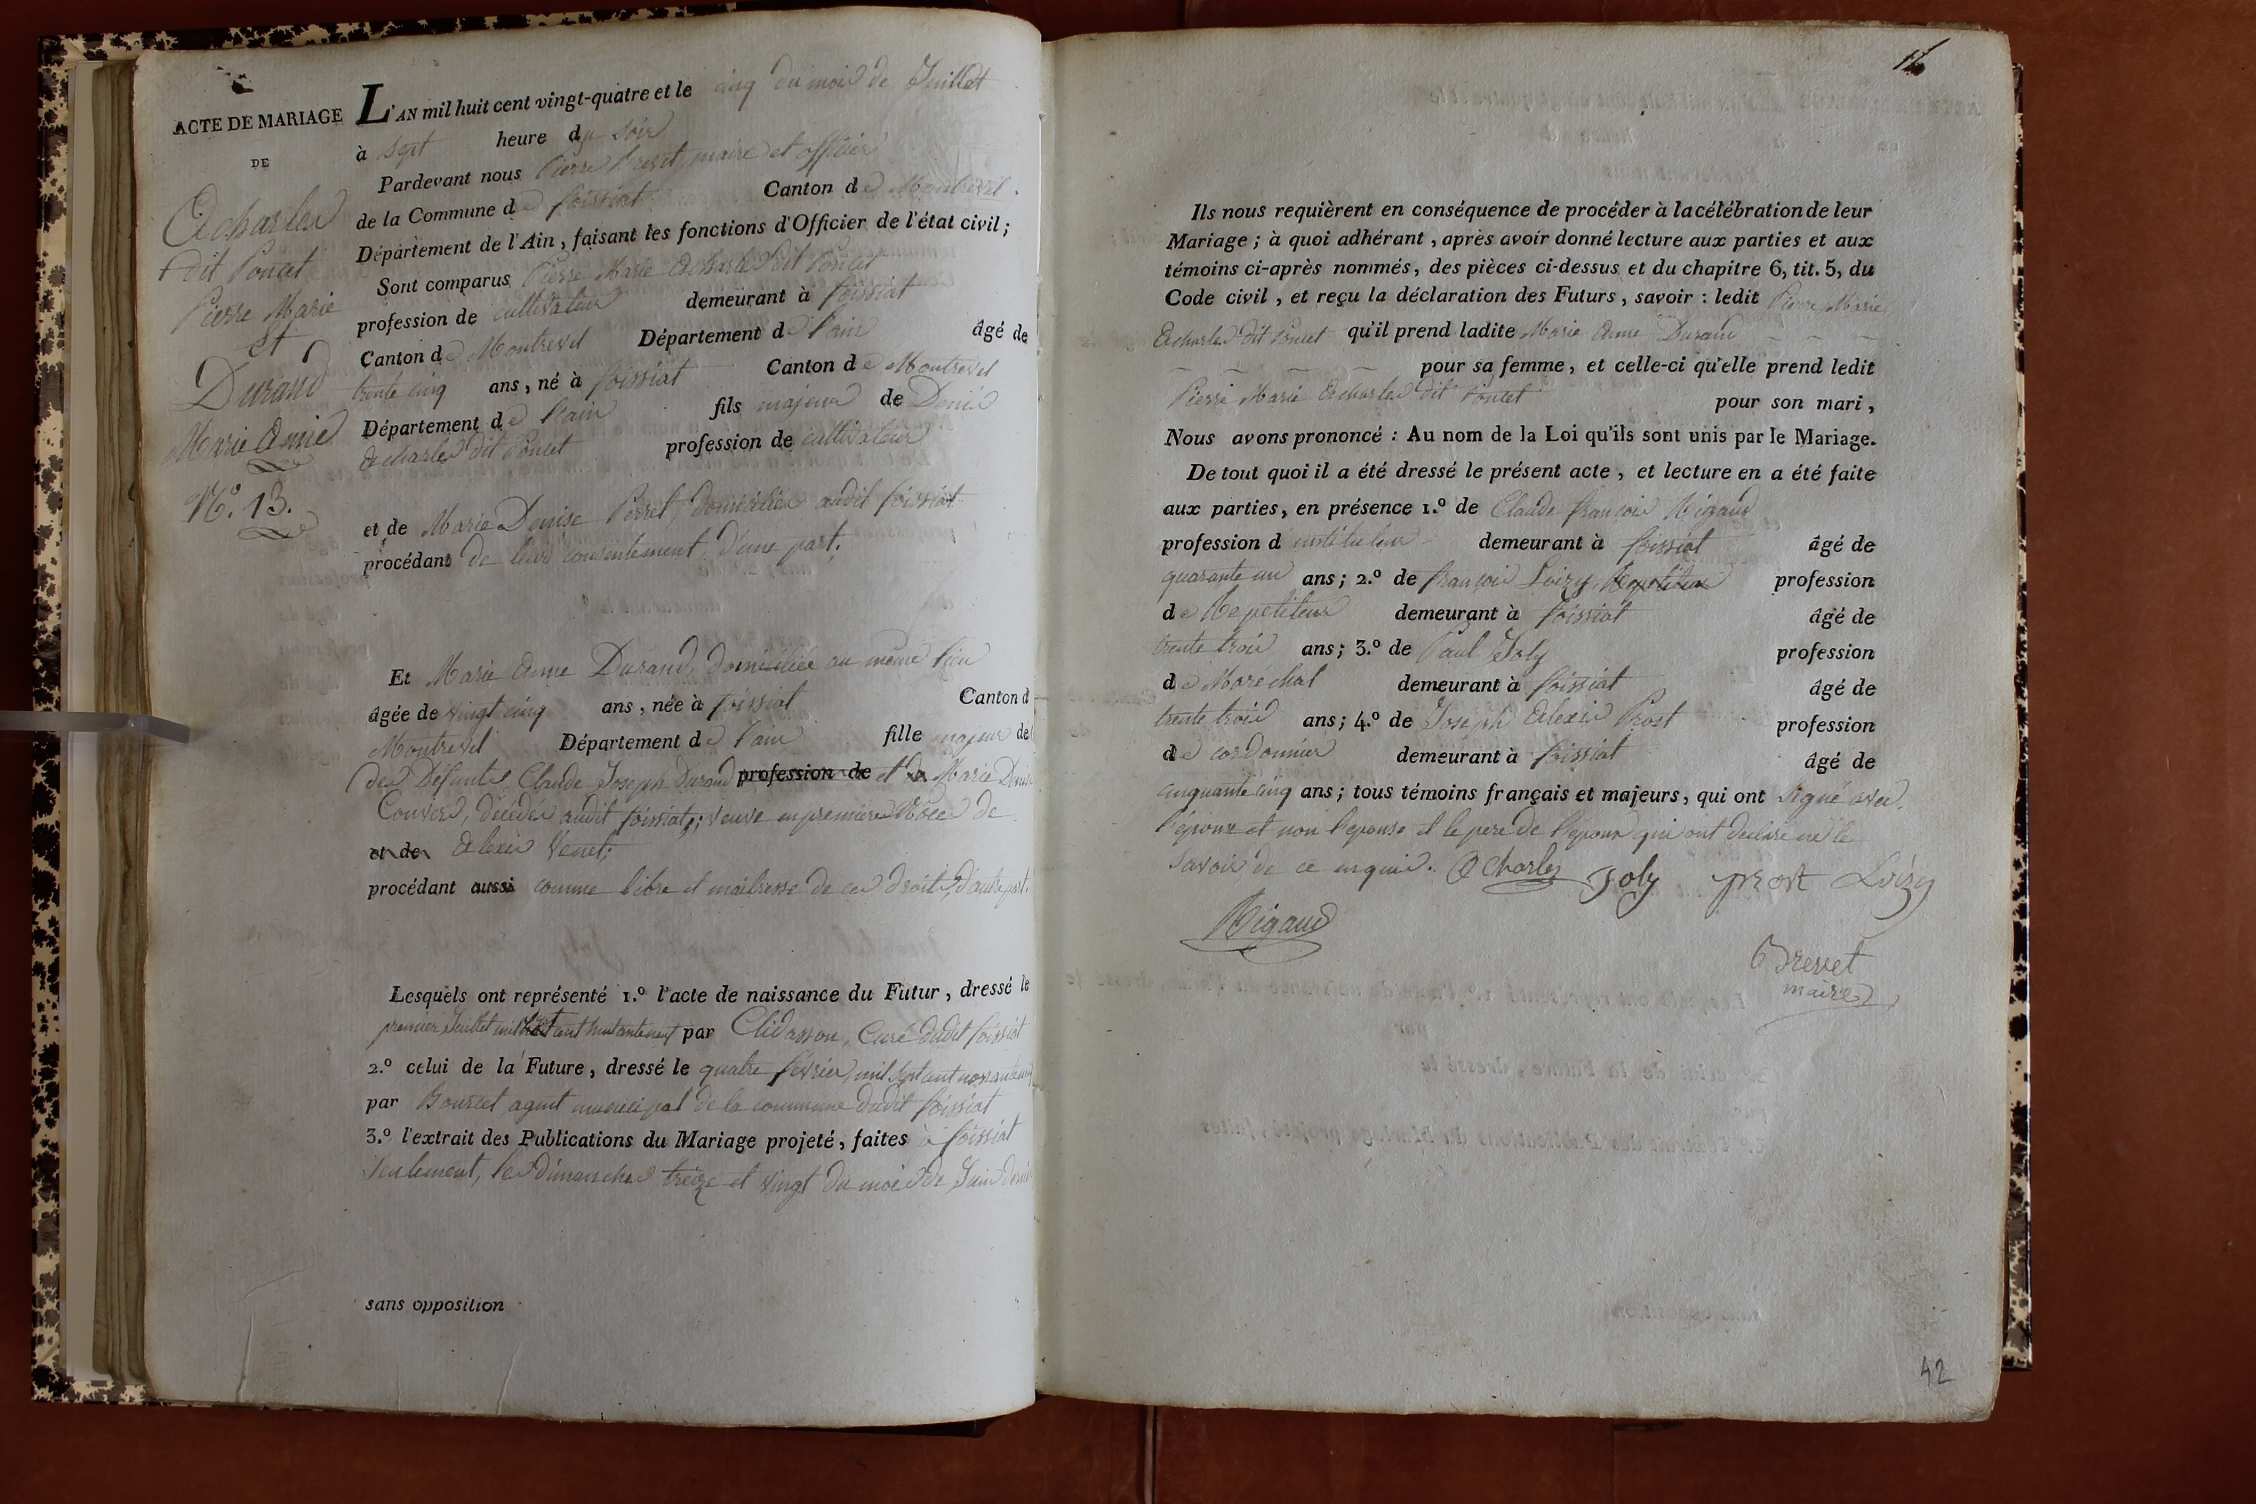 ACTE DE MARIAGE
DE
Acharles
dit Poncet
Pierre Marie
Et
Durand
Marie Anne
N.º 13.
L'AN mil huit cent vingt-quatre et le cinq du mois de Juillet
à sept heure du soir
Pardevant nous Pierre Brevet, maire et officier
de la Commune de foissiat Canton de Montrevel.
Département de l'Ain, faisant les fonctions d'Officier de l'état civil;
Sont comparus Pierre Marie Acharles dit Poncet
profession de cultivateur demeurant à foissiat
Canton de Montrevel Département de l'ain âgé de
trente cinq ans, né à foissiat Canton de Montrevel
Département de l'ain fils majeur de Denis
Acharles dit Poncet profession de cultivateur
et de Marie Denise Perret, domiciliés audit foissiat
procédant de leur consentement, d'une part;
Et Marie Anne Durand, domiciliée au même lieu
âgée de vingt cinq ans, née à foissiat Canton d
Montrevel Département de l'ain fille majeur de
des Défunts Claude Joseph Durand profession de et de Marie Denise
décédés audit foissiat; veuve en premières Noces de
et de Alexis Venet;
procédant aussi comme libre et maitresse de ces droits, d'autre part.
Lesquels ont représenté 1.º l'acte de naissance du Futur, dressé le
premier Juillet mil sept cent huitanteneuf par Curé dudit foissiat
2.º celui de la Future, dressé le quatre février, mil sept cent
par agent municipal de la commune dudit foissiat
3.º l'extrait des Publications du Mariage projeté, faites à foissiat
seulement, les dimanches treize et vingt du mois de Juin dernier
sans opposition
16
Ils nous requièrent en conséquence de procéder à la célébration de leur
Mariage; à quoi adhérant, après avoir donné lecture aux parties et aux
témoins ci-après nommés, des pièces ci-dessus et du chapitre 6, tit. 5, du
Code civil, et reçu la déclaration des Futurs, savoir: ledit Pierre Marie
Acharles dit Poncet qu'il prend ladite Marie Anne Durand
pour sa femme, et celle-ci qu'elle prend ledit
Pierre Marie Acharles dit Poncet pour son mari,
Nous avons prononcé: Au nom de la Loi qu'ils sont unis par le Mariage.
De tout quoi il a été dressé le présent acte, et lecture en a été faite
aux parties, en présence 1.º de Claude françois Rigaud
profession d instituteur demeurant à foissiat âgé de
quarante un ans; 2.º de françois Loizy Repetiteur profession
de Repetiteur demeurant à foissiat âgé de
trente trois ans; 3.º de Paul Joly profession
de Maréchal demeurant à foissiat âgé de
trente trois ans; 4.º de Joseph Alexis Prost profession
de cordonnier demeurant à foissiat âgé de
cinquante cinq ans; tous témoins français et majeurs, qui ont signé avec
l'époux et non l'épouse et le pere de l'époux qui ont declaré ne le
savoir de ce enquis. Acharles Joly prost Loizy
Rigaud
Brevet
maire
42